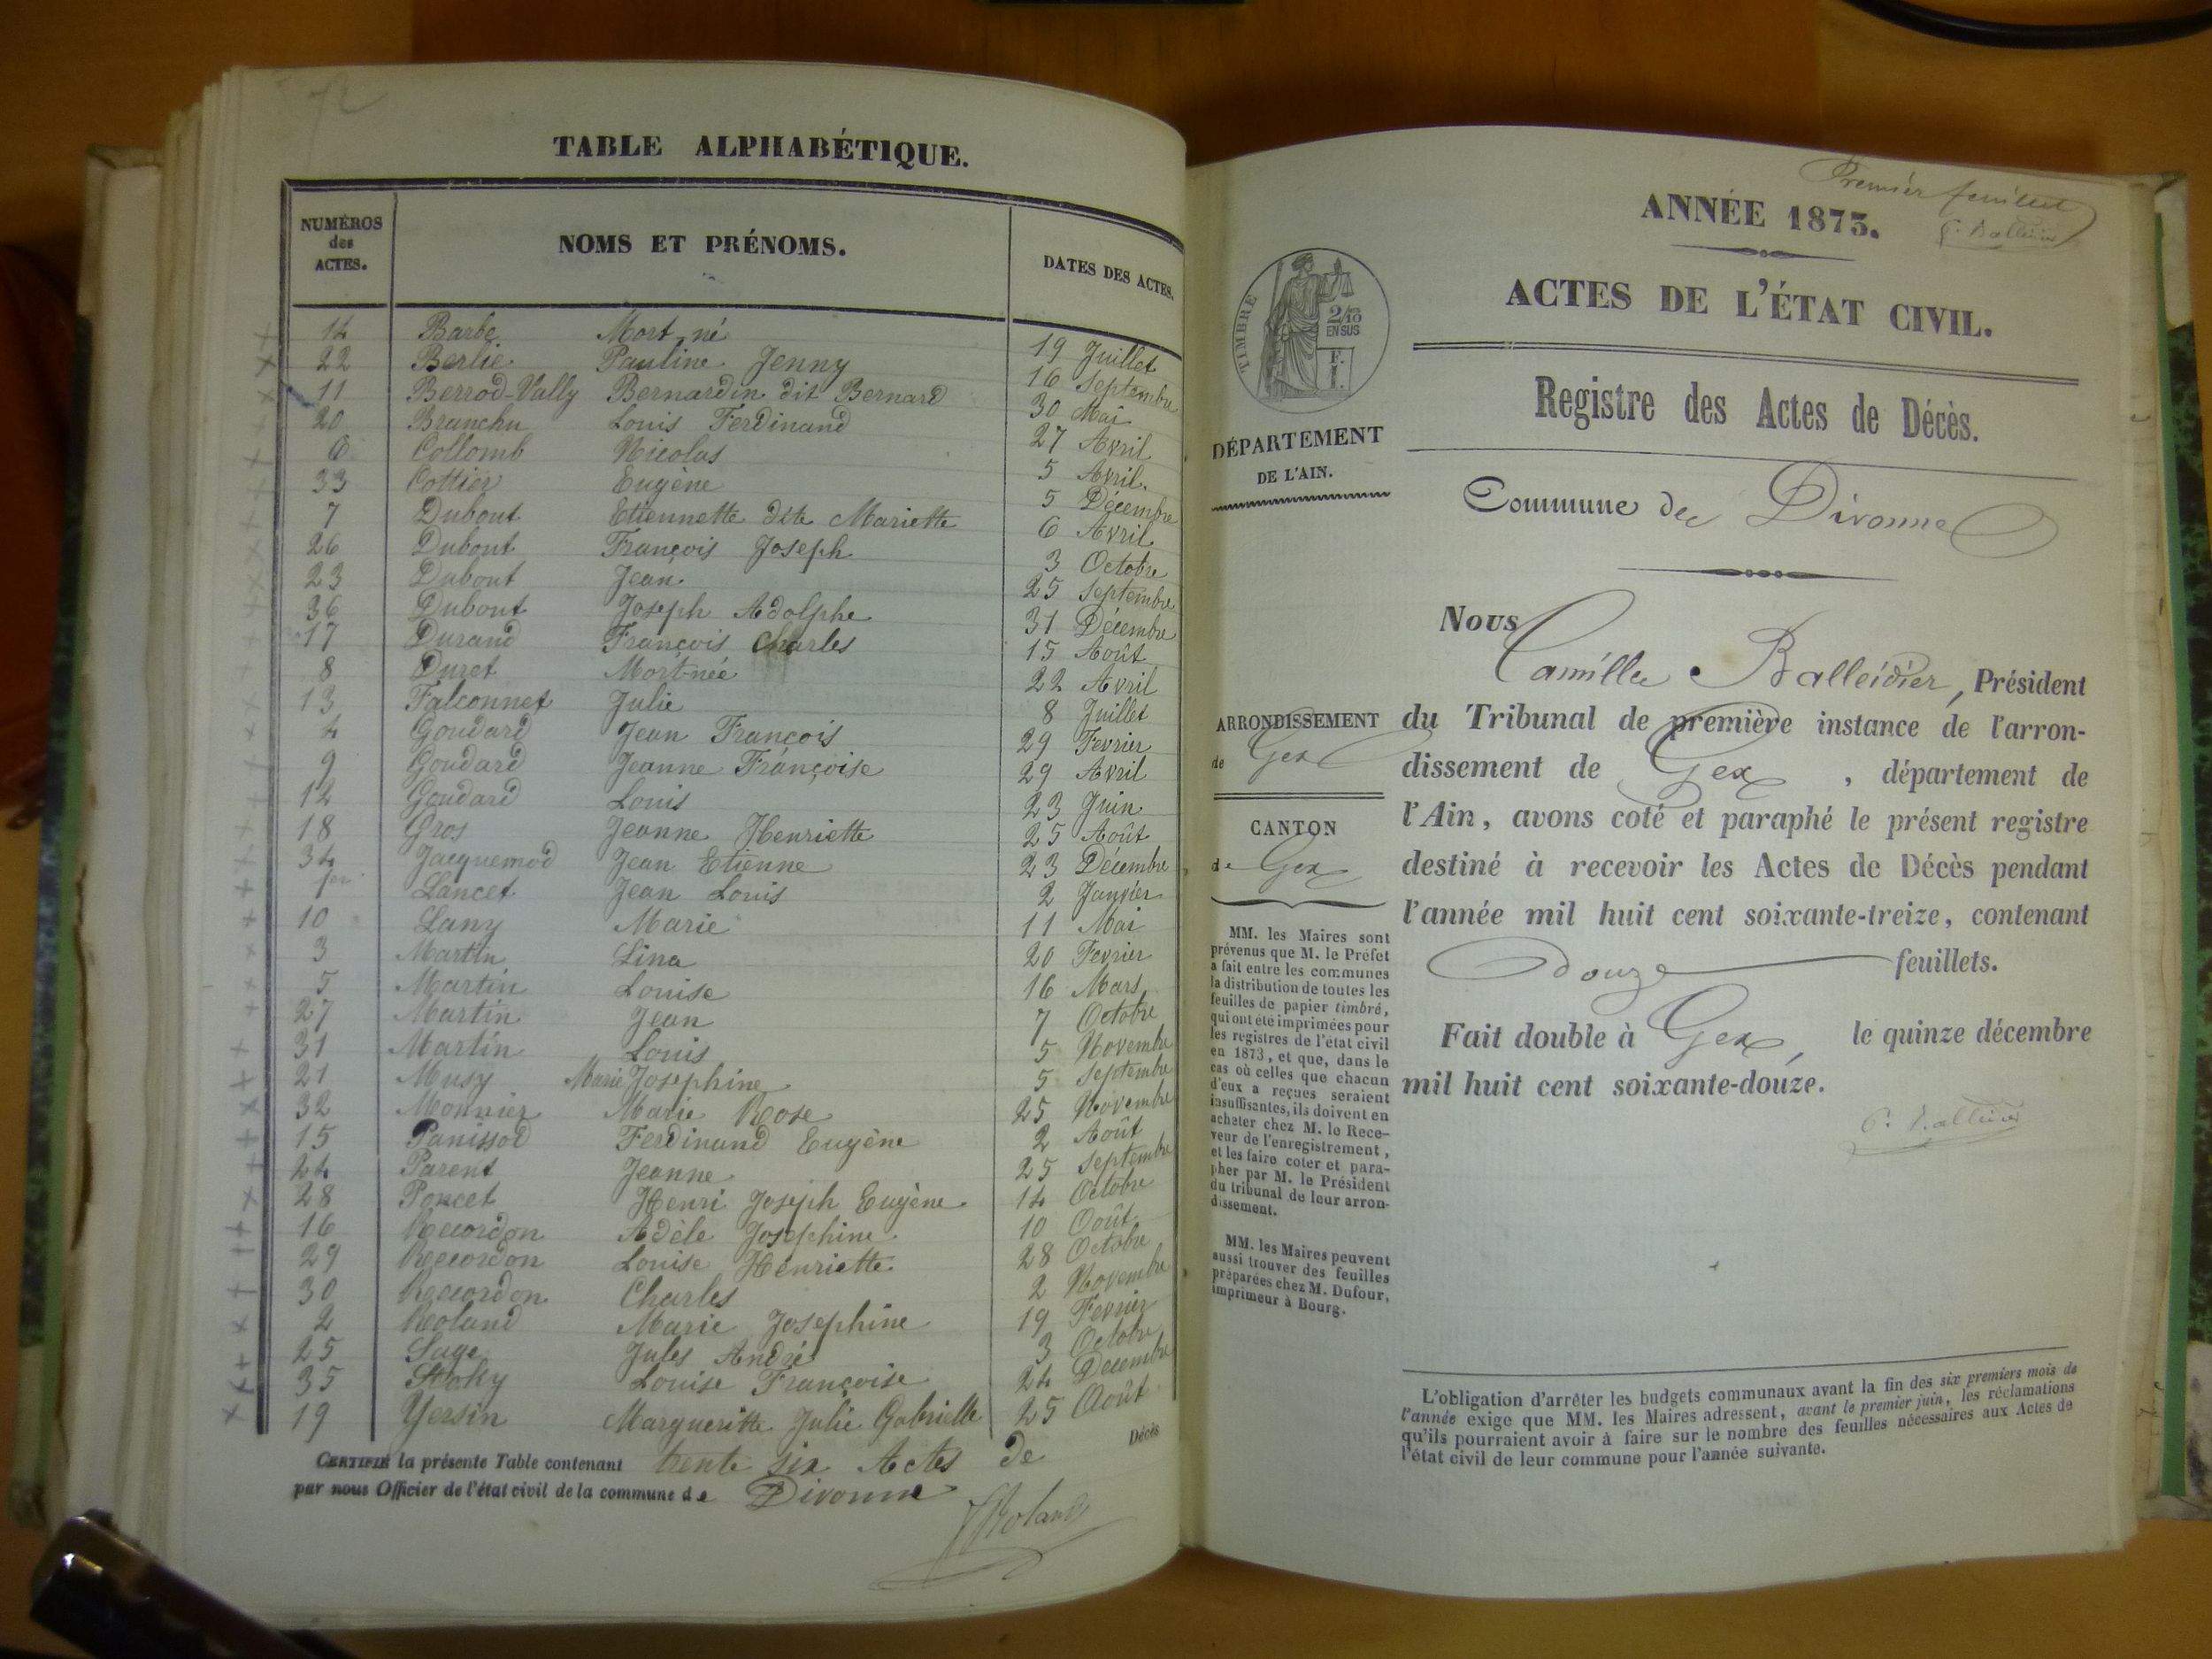 72
TABLE ALPHABÉTIQUE.
NUMÉROS des ACTES.
NOMS ET PRÉNOMS.
DATES DES ACTES.
14 Barbe Mort né 19 Juillet
22 Berlie Pauline Jenny 16 Septembre
11 Berrod-Vally Bernardin dit Bernard 30 Mai
20 Branchu Louis Ferdinand 27 Avril
6 Collomb Nicolas 5 Avril
33 Cottier Eugène 5 Décembre
7 Dubout Etiennette dite Mariette 6 Avril
26 Dubout François Joseph 3 Octobre
23 Dubout Jean 25 Septembre
36 Dubout Joseph Adolphe 31 Décembre
17 Durand François Charles 15 Août
8 Duret Mort-née 22 Avril
13 Falconnet Julie 8 Juillet
4 Goudard Jean François 29 Fevrier
9 Goudard Jeanne Françoise 29 Avril
12 Goudard Louis 23 Juin
18 Gros Jeanne Henriette 25 Août
34 Jacquemod Jean Etienne 23 Décembre
1er Lancet Jean Louis 2 Janvier
10 Lany Marie 11 Mai
3 Martin Lina 20 Fevrier
5 Martin Louise 16 Mars
27 Martin Jean 7 Octobre
31 Martin Louis 5 Novembre
21 Musy Marie Josephine 5 Septembre
32 Monnier Marie Rose 25 Novembre
15 Panissod Ferdinand Eugène 2 Août
24 Parent Jeanne 25 Septembre
28 Poncet Henri Joseph Eugène 14 Octobre
16 Recordon Adèle Josephine 10 Août
29 Recordon Louise Henriette 28 Octobre
30 Recordon Charles 2 Novembre
2 Roland Marie Josephine 19 Fevrier
25 Sage Jules André 3 Octobre
35 Stoky Louise Françoise 24 Decembre
19 Yersin Margueritte Julie Gabrielle 25 Août
CERTIFIÉ la présente Table contenant trente six Actes de Décès
par nous Officier de l'état civil de la commune de Divonne
Roland
Premier feuillet
ANNÉE 1873.
C. Balleidier
ACTES DE L'ÉTAT CIVIL.
TIMBRE
2/10
EN SUS
F.
I.
Registre des Actes de Décès.
DÉPARTEMENT
DE L'AIN.
Commune de Divonne
Nous
Camille Balleidier, Président
ARRONDISSEMENT
de Gex
du Tribunal de première instance de l'arron-
dissement de Gex, département de
l'Ain, avons coté et paraphé le présent registre
destiné à recevoir les Actes de Décès pendant
l'année mil huit cent soixante-treize, contenant
Douze feuillets.
Fait double à Gex, le quinze décembre
mil huit cent soixante-douze.
C. Balleidier
CANTON
de Gex
MM. les Maires sont
prévenus que M. le Préfet
a fait entre les communes
la distribution de toutes les
feuilles de papier timbré,
qui ont été imprimées pour
les registres de l'état civil
en 1873, et que, dans le
cas où celles que chacun
d'eux a reçues seraient
insuffisantes, ils doivent en
acheter chez M. le Rece-
veur de l'enregistrement,
et les faire coter et para-
pher par M. le Président
du tribunal de leur arron-
dissement.
MM. les Maires peuvent
aussi trouver des feuilles
préparées chez M. Dufour,
imprimeur à Bourg.
L'obligation d'arrêter les budgets communaux avant la fin des six premiers mois de
l'année exige que MM. les Maires adressent, avant le premier juin, les réclamations
qu'ils pourraient avoir à faire sur le nombre des feuilles nécessaires aux Actes de
l'état civil de leur commune pour l'année suivante.